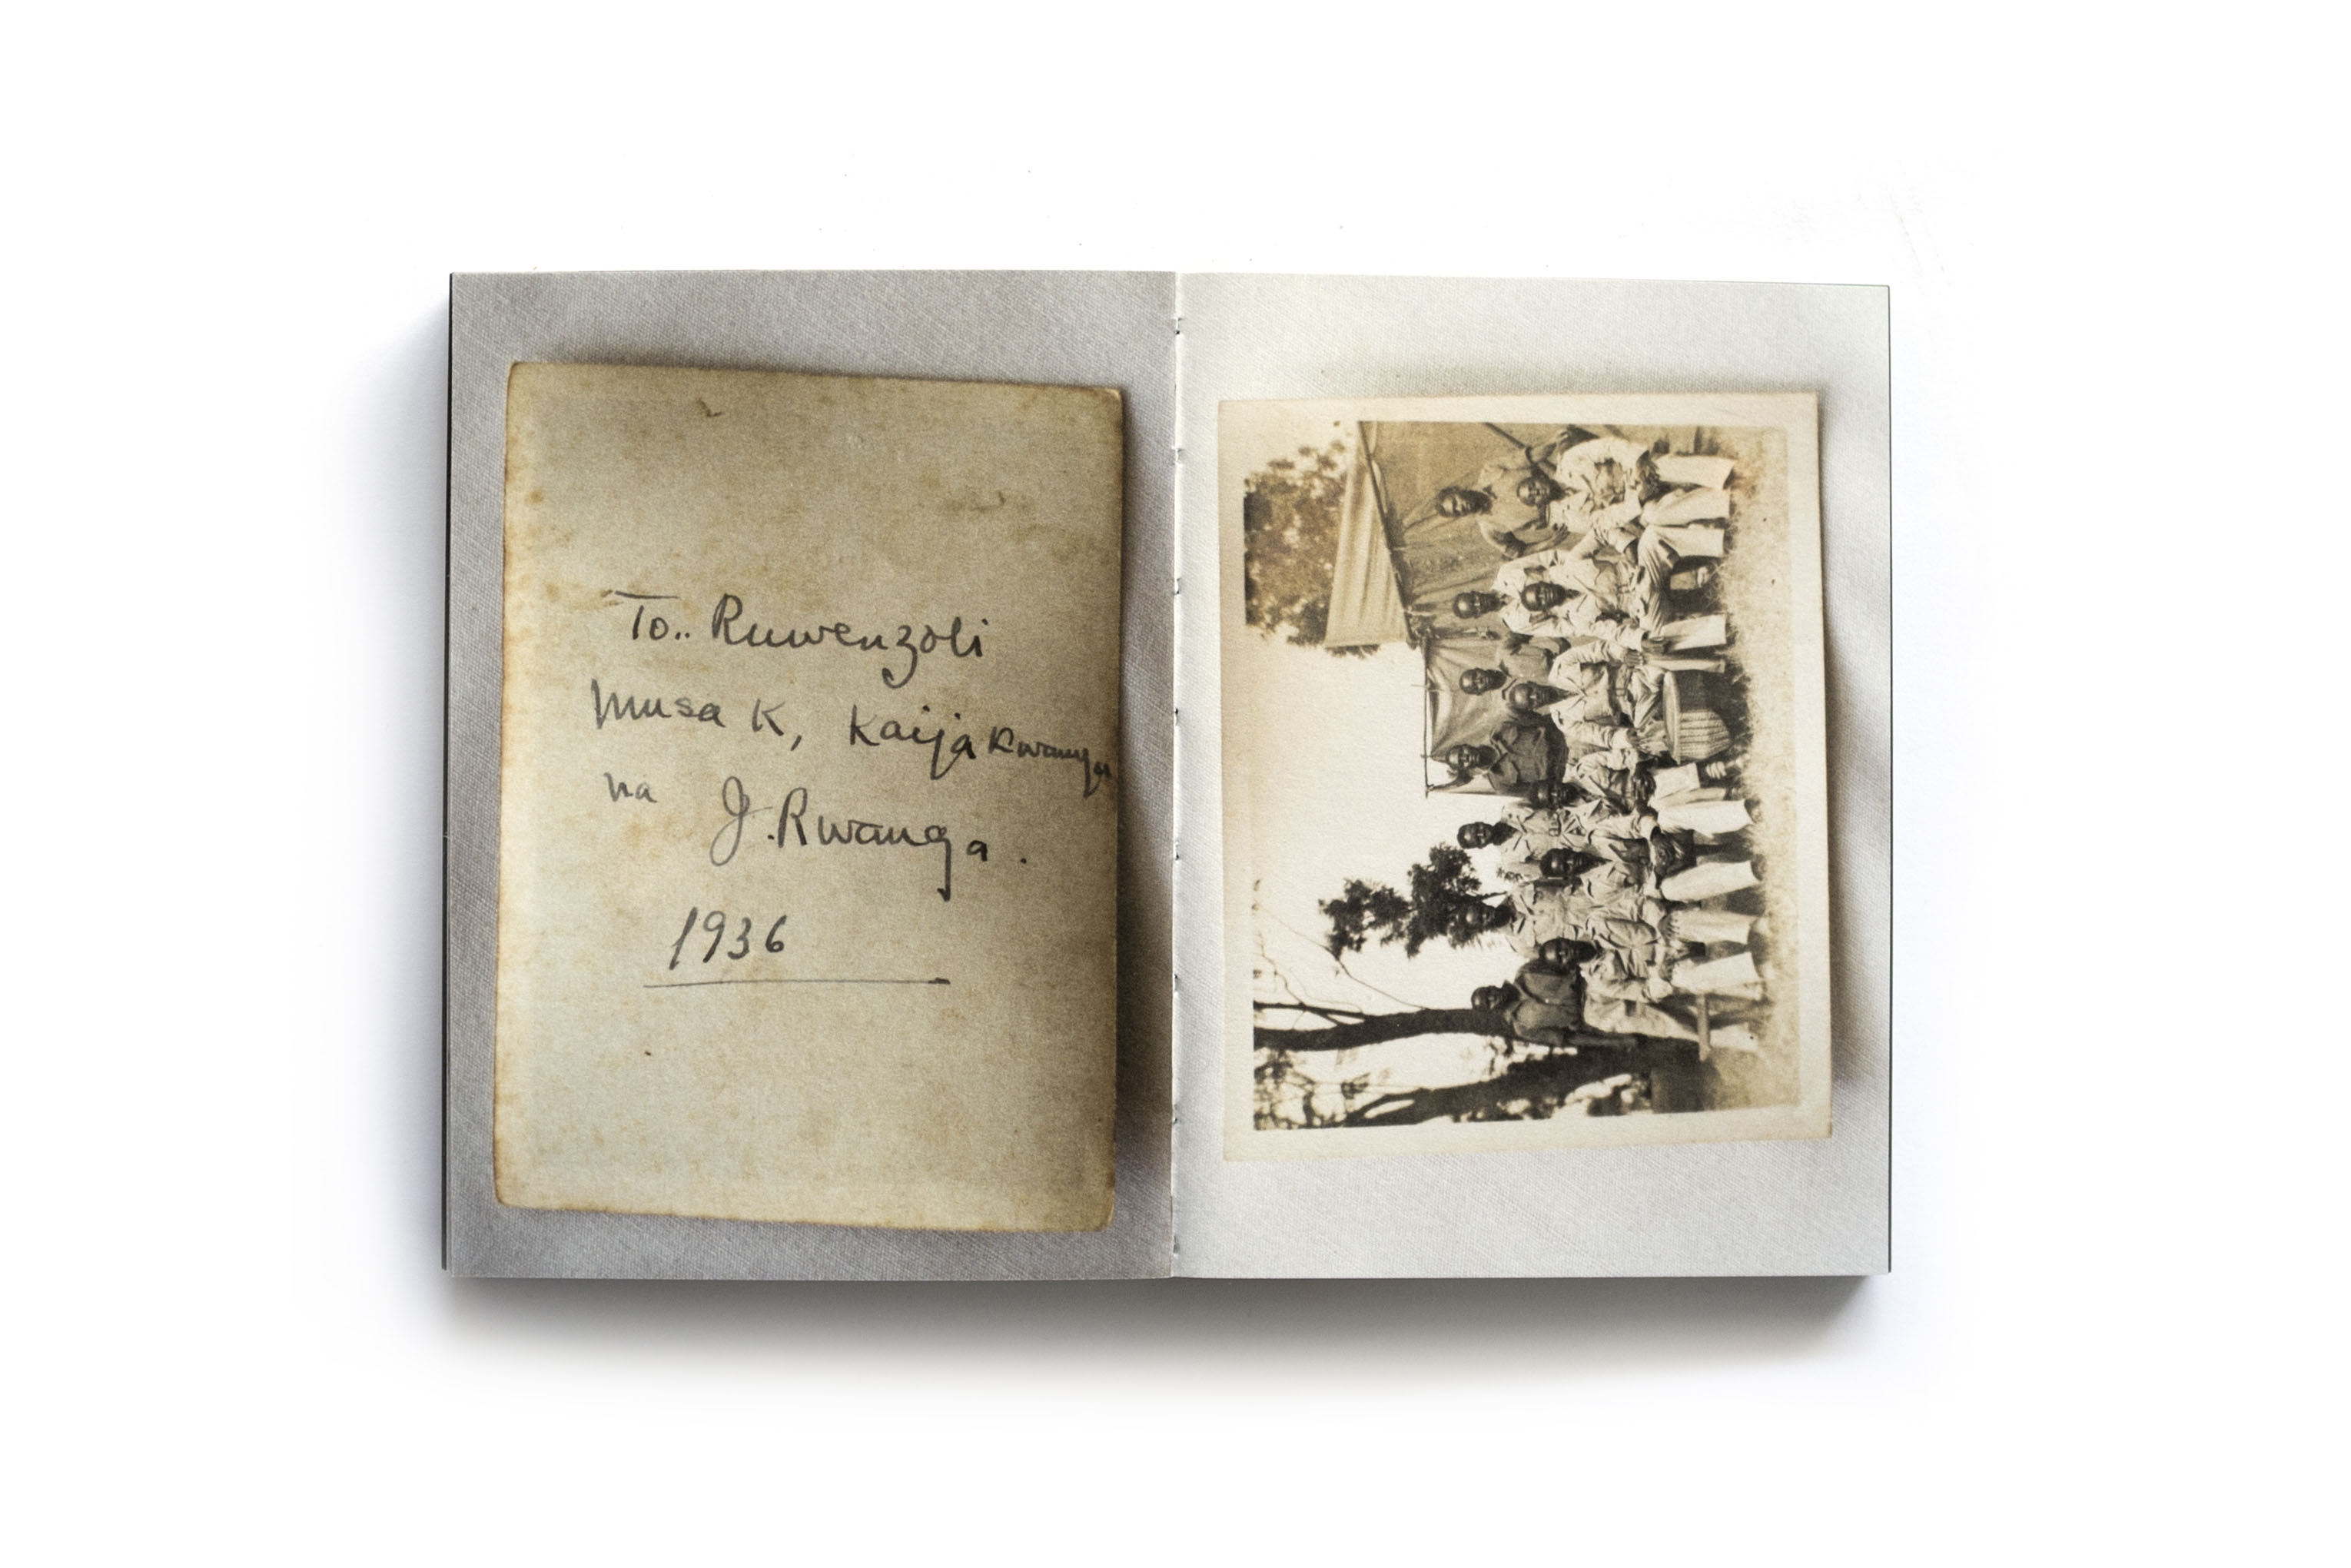 To.. Ruwenzoli
Musa K, Kaija Rwanga
na J. Rwanga.
1936